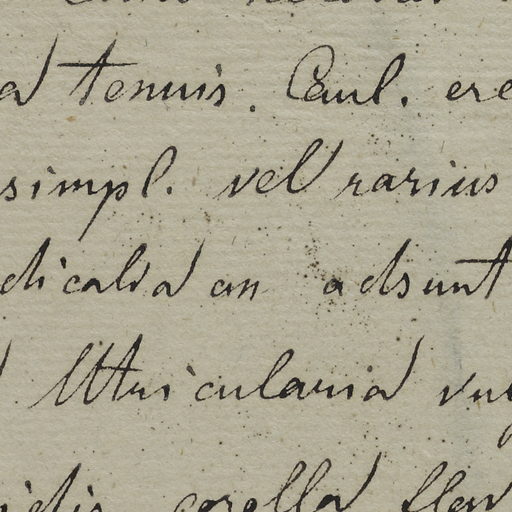 a tenuis. Caul. ere
simpl. vel rarius
dicalia an adsunt
Utricularia vul
corolla flav